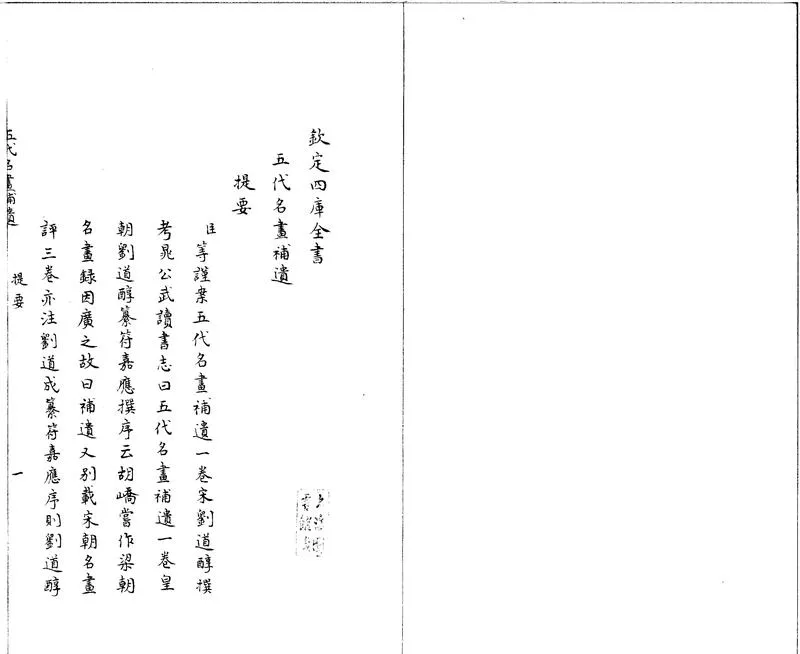 欽定四庫全書
五代名畫補遺
提要
臣等謹案五代名畫補遺一卷宋劉道醇撰
考晁公武讀書志曰五代名畫補遺一卷皇
朝劉道醇纂符嘉應撰序云胡嶠嘗作梁朝
名畫録因廣之故曰補遺又別載宋朝名畫
評三卷亦注劉道成纂符嘉應序則劉道醇
五代名畫補遺
提要
一